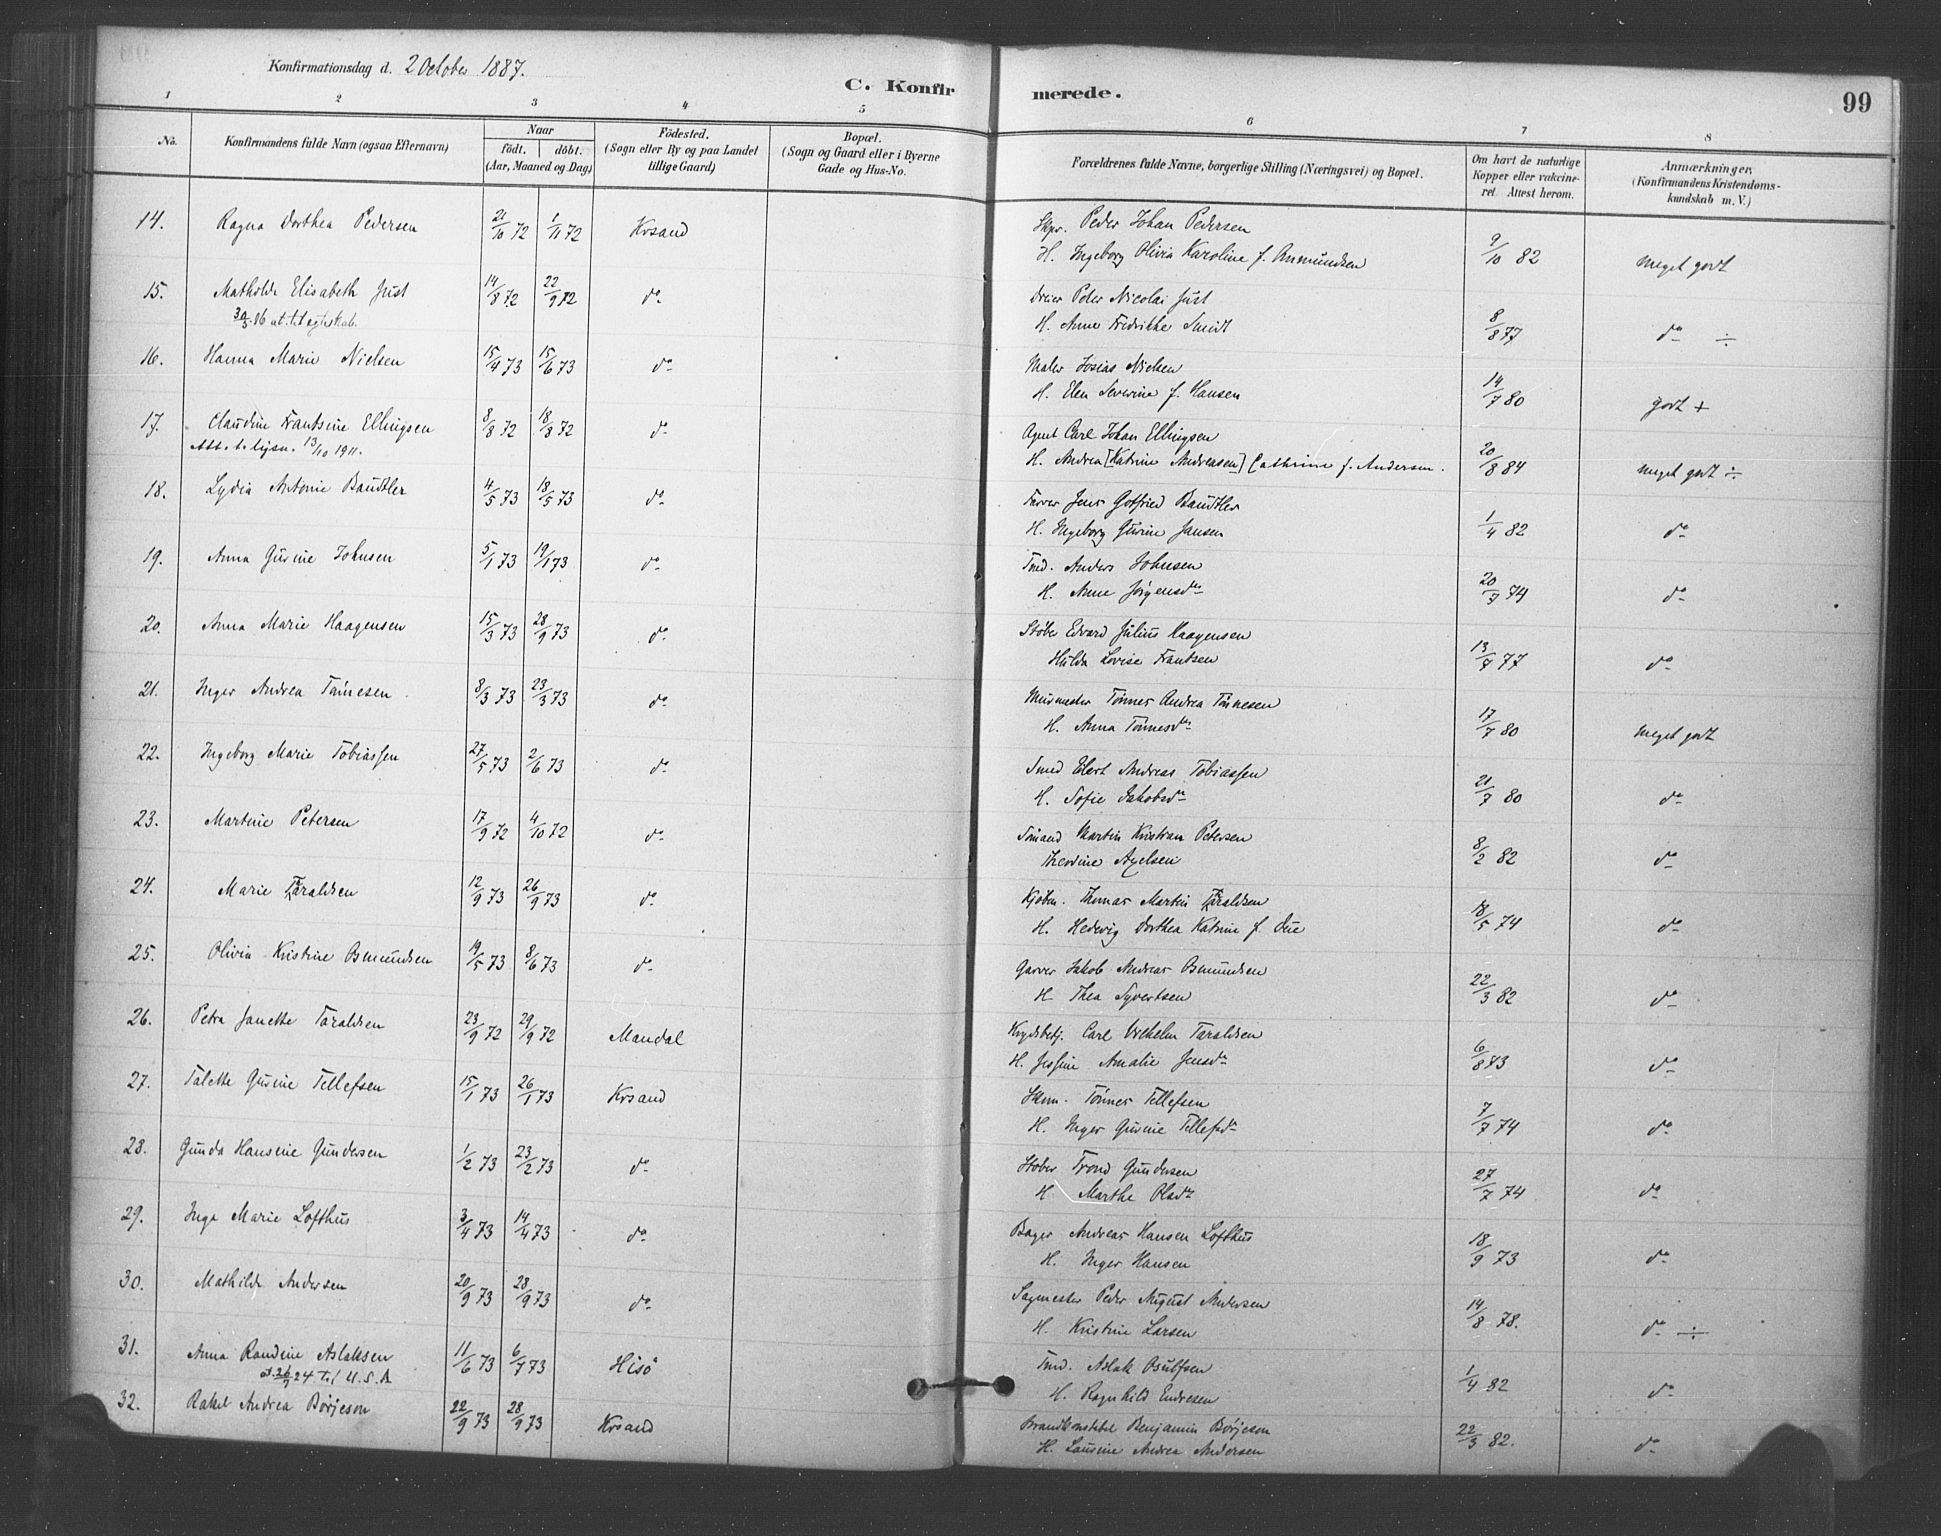 Konfirmationsdag d. 2 October 1887.
C. Konfirmerede. 99
1 2 3 4 5 6 7 8
No. Konfirmandens fulde Navn (ogsaa Efternavn) Naar födt. döbt. (Aar, Maaned og Dag) Födested. (Sogn eller By og paa Landet tillige Gaard) Bopæl. (Sogn og Gaard eller i Byerne Gade og Hus-No. Forældrenes fulde Navne, borgerlige Stilling (Næringsvei) og Bopæl. Om havt de naturlige Kopper eller vakcineret Attest herom. Anmærkninger, (Konfirmandens Kristendomskundskab m. V.)
14. Ragna Dorthea Pedersen 21/10 72 1/11 72 Krsand Skpr. Peder Johan Pedersen
H. Ingeborg Olivia Karoline f. Anmundsen 9/10 82 meget godt
15. Mathilde Elisabeth Just 14/8 72 22/9 72 do Dreier Peder Nicolai Just
30/5 06 at. til egteskab. H. Anne Fredrikke Smidt 8/8 77 do ÷
16. Hanna Marie Nielsen 15/4 73 15/6 73 do Maler Josias Nielsen
H. Elen Severine f. Hansen 14/7 80 godt +
17. Claudine Frantsine Ellingsen 8/8 72 18/8 72 do Agent Carl Johan Ellingsen
Att. t. lysn. 13/10 1911. H. Andrea [Katrine Andreasen] Cathrine f. Andersen. 20/8 84 meget godt ÷
18. Lydia Antonie Baudtler 4/5 73 18/5 73 do Farver Jens Gotfried Baudtler
H. Ingeborg Gurine Jansen 1/4 82 do
19. Anna Gurine Johnsen 5/1 73 19/1 73 do Tmd. Anders Johnsen
H. Anne Jørgensdr 20/7 74 do
20. Anna Marie Haagensen 15/3 73 28/9 73 do Støber Edvard Julius Haagensen
Hulda Lovise Frantsen 13/7 77 do
21. Inger Andrea Tönnesen 8/3 73 23/3 73 do Murmester Tönnes Andrea Tönnesen
H. Anna Tönnesdr 17/7 80 meget godt
22. Ingeborg Marie Tobiassen 27/5 73 2/6 73 do Smed Elert Andreas Tobiassen
H. Sofie Jakobsdr 21/7 80 do
23. Martine Petersen 17/9 72 4/10 72 do Sömand Martin Kristian Petersen
Theodine Axelsen 8/2 82 do
24. Marie Taraldsen 12/9 73 26/9 73 do Kjöbm. Thomas Martin Taraldsen
H. Hedevig Dorthea Katrine f. Due 18/5 74 do
25. Olivia Kristine Osmundsen 19/5 73 8/6 73 do Garver Jakob Andreas Osmundsen
H. Thea Syvertsen 22/3 82 do
26. Petra Janette Taraldsen 23/9 72 29/9 72 Mandal Krydsbetj. Carl Wilhelm Taraldsen
H. Jessine Amalie Jensdr 6/8 83 do
27. Talette Gurine Tellefsen 15/1 73 26/1 73 Krsand Skom. Tönnes Tellefsen
H. Inger Gurine Tellefsdr 7/7 74 do
28. Gunda Hansine Gundersen 1/2 73 23/2 73 do Støber Trond Gundersen
H. Marthe Olsdr 27/7 74 do
29. Inga Marie Lofthus 3/4 73 14/4 73 do Bager Andreas Hansen Lofthus
H. Inger Hansen 18/9 73 do
30. Mathilde Andersen 20/9 73 28/9 73 do Sagmester Peder August Andersen
H. Kristine Larsen 14/8 78. do ÷
31. Anna Randine Aslaksen 11/6 73 6/7 73 Hisö Tmd. Aslak Osulfsen
26/9 24 til U.S.A H. Ragnhild Endresen 1/4 82 do
32. Rakel Andrea Börjeson 22/9 73 28/9 73 Krsand Brandkonstabel Benjamin Börjeson
H. Lausine Andrea Andersen 22/3 82. do